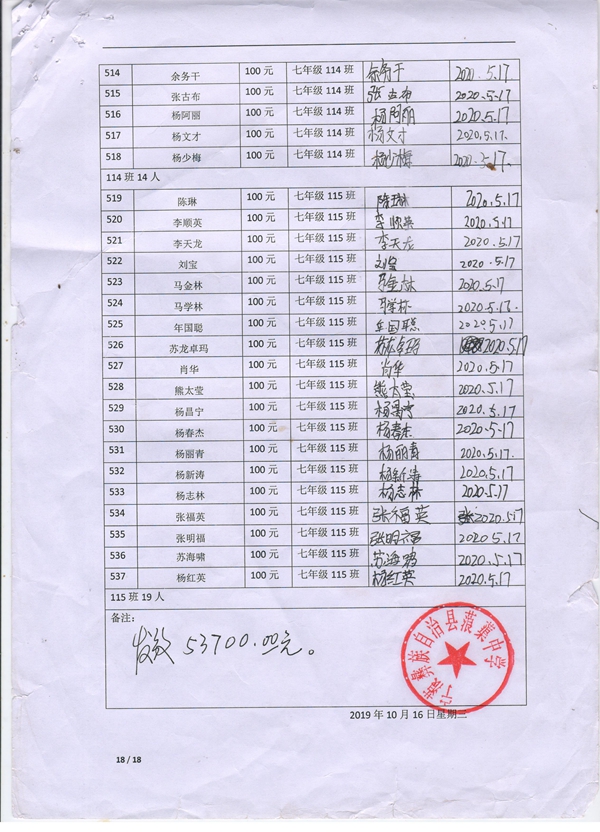 514 余务干 100 元 七年级 114 班 余务干 2020.5.17
515 张古布 100 元 七年级 114 班 张古布 2020.5.17
516 杨阿丽 100 元 七年级 114 班 杨阿丽 2020.5.17
517 杨文才 100 元 七年级 114 班 杨文才 2020.5.17.
518 杨少梅 100 元 七年级 114 班 杨少梅 2020.5.17.
114 班 14 人
519 陈琳 100 元 七年级 115 班 陈琳 2020.5.17
520 李顺英 100 元 七年级 115 班 李顺英 2020.5.17
521 李天龙 100 元 七年级 115 班 李天龙 2020.5.17
522 刘宝 100 元 七年级 115 班 刘宝 2020.5.17
523 马金林 100 元 七年级 115 班 马金林 2020.5.17
524 马学林 100 元 七年级 115 班 马学林 2020.5.17.
525 年国聪 100 元 七年级 115 班 年国聪 2020.5.17
526 苏龙卓玛 100 元 七年级 115 班 苏龙卓玛 2020.5.17
527 肖华 100 元 七年级 115 班 肖华 2020.5.17
528 熊太莹 100 元 七年级 115 班 熊太莹 2020.5.17
529 杨昌宁 100 元 七年级 115 班 杨昌宁 2020.5.17
530 杨春杰 100 元 七年级 115 班 杨春杰 2020.5.17
531 杨丽青 100 元 七年级 115 班 杨丽青 2020.5.17.
532 杨新涛 100 元 七年级 115 班 杨新涛 2020.5.17
533 杨志林 100 元 七年级 115 班 杨志林 2020.5.17
534 张福英 100 元 七年级 115 班 张福英 2020.5.17
535 张明福 100 元 七年级 115 班 张明福 2020.5.17
536 苏海啸 100 元 七年级 115 班 苏海啸 2020.5.17
537 杨红英 100 元 七年级 115 班 杨红英 2020.5.17
115 班 19 人
备注：
发放 53700.00元。
宁蒗彝族自治县蒗蕖中学
2019 年 10 月 16 日星期三
18 / 18